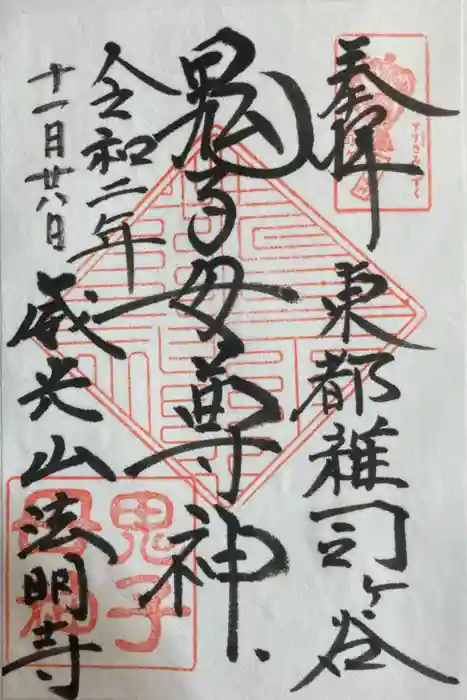 奉拝
東都雑司ヶ谷
すすきみみずく
鬼子母尊神
令和二年
十一月廿八日
威光山法明寺
鬼子
母神